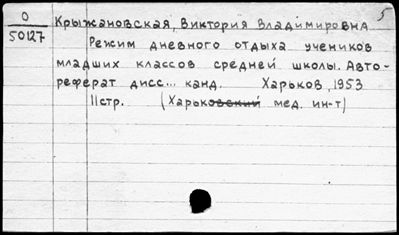 О
50127
5
Крыжановская, Виктория Владимировна
Режим дневного отдыха учеников
младших классов средней школы. Авто-
реферат дисс... канд. Харьков, 1953
11стр. (Харьковский мед. ин-т)